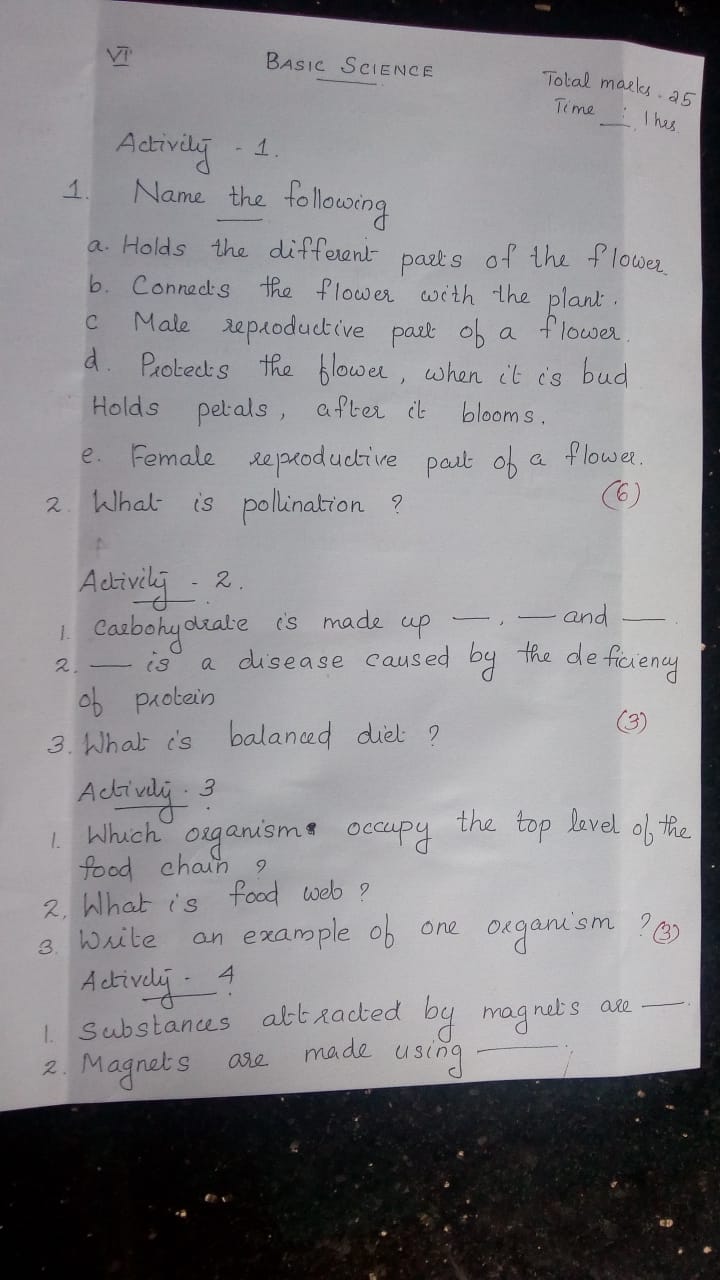 VI
BASIC SCIENCE
Total marks. 25
Time : 1 hrs
Activity - 1.
1. Name the following
a. Holds the different parts of the flower
b. Connects the flower with the plant.
c Male reproductive part of a flower.
d. Protects the flower, when it is bud
Holds petals, after it blooms.
e. Female reproductive part of a flower.
2. What is pollination ? (6)
Activity - 2.
1. Carbohydrate is made up —, — and —.
2. — is a disease caused by the deficiency
of protein
3. What is balanced diet ? (3)
Activity. 3
1. Which organism occupy the top level of the
food chain ?
2, What is food web ?
3. Write an example of one organism ? (3)
Activity - 4
1. Substances attracted by magnets are —.
2. Magnets are made using —